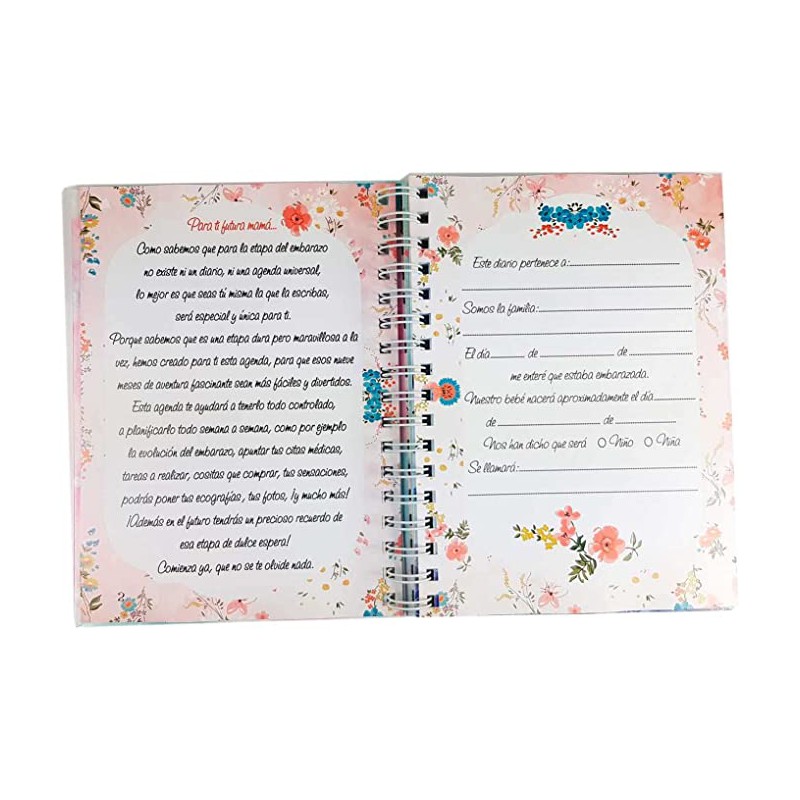 Para ti futura mamá...
Como sabemos que para la etapa del embarazo
no existe ni un diario, ni una agenda universal,
lo mejor es que seas tú misma la que la escribas,
será especial y única para ti.
Porque sabemos que es una etapa dura pero maravillosa a la
vez, hemos creado para ti esta agenda, para que esos nueve
meses de aventura fascinante sean más fáciles y divertidos.
Esta agenda te ayudará a tenerlo todo controlado,
a planificarlo todo semana a semana, como por ejemplo
la evolución del embarazo, apuntar tus citas médicas,
tareas a realizar, cositas que comprar, tus sensaciones,
podrás poner tus ecografías, tus fotos, ¡y mucho más!
¡Además en el futuro tendrás un precioso recuerdo de
esa etapa de dulce espera!
Comienza ya, que no se te olvide nada.
2
Este diario pertenece a:
Somos la familia:
El día de de
me enteré que estaba embarazada.
Nuestro bebé nacerá aproximadamente el día
de de
Nos han dicho que será Niño Niña
Se llamará: